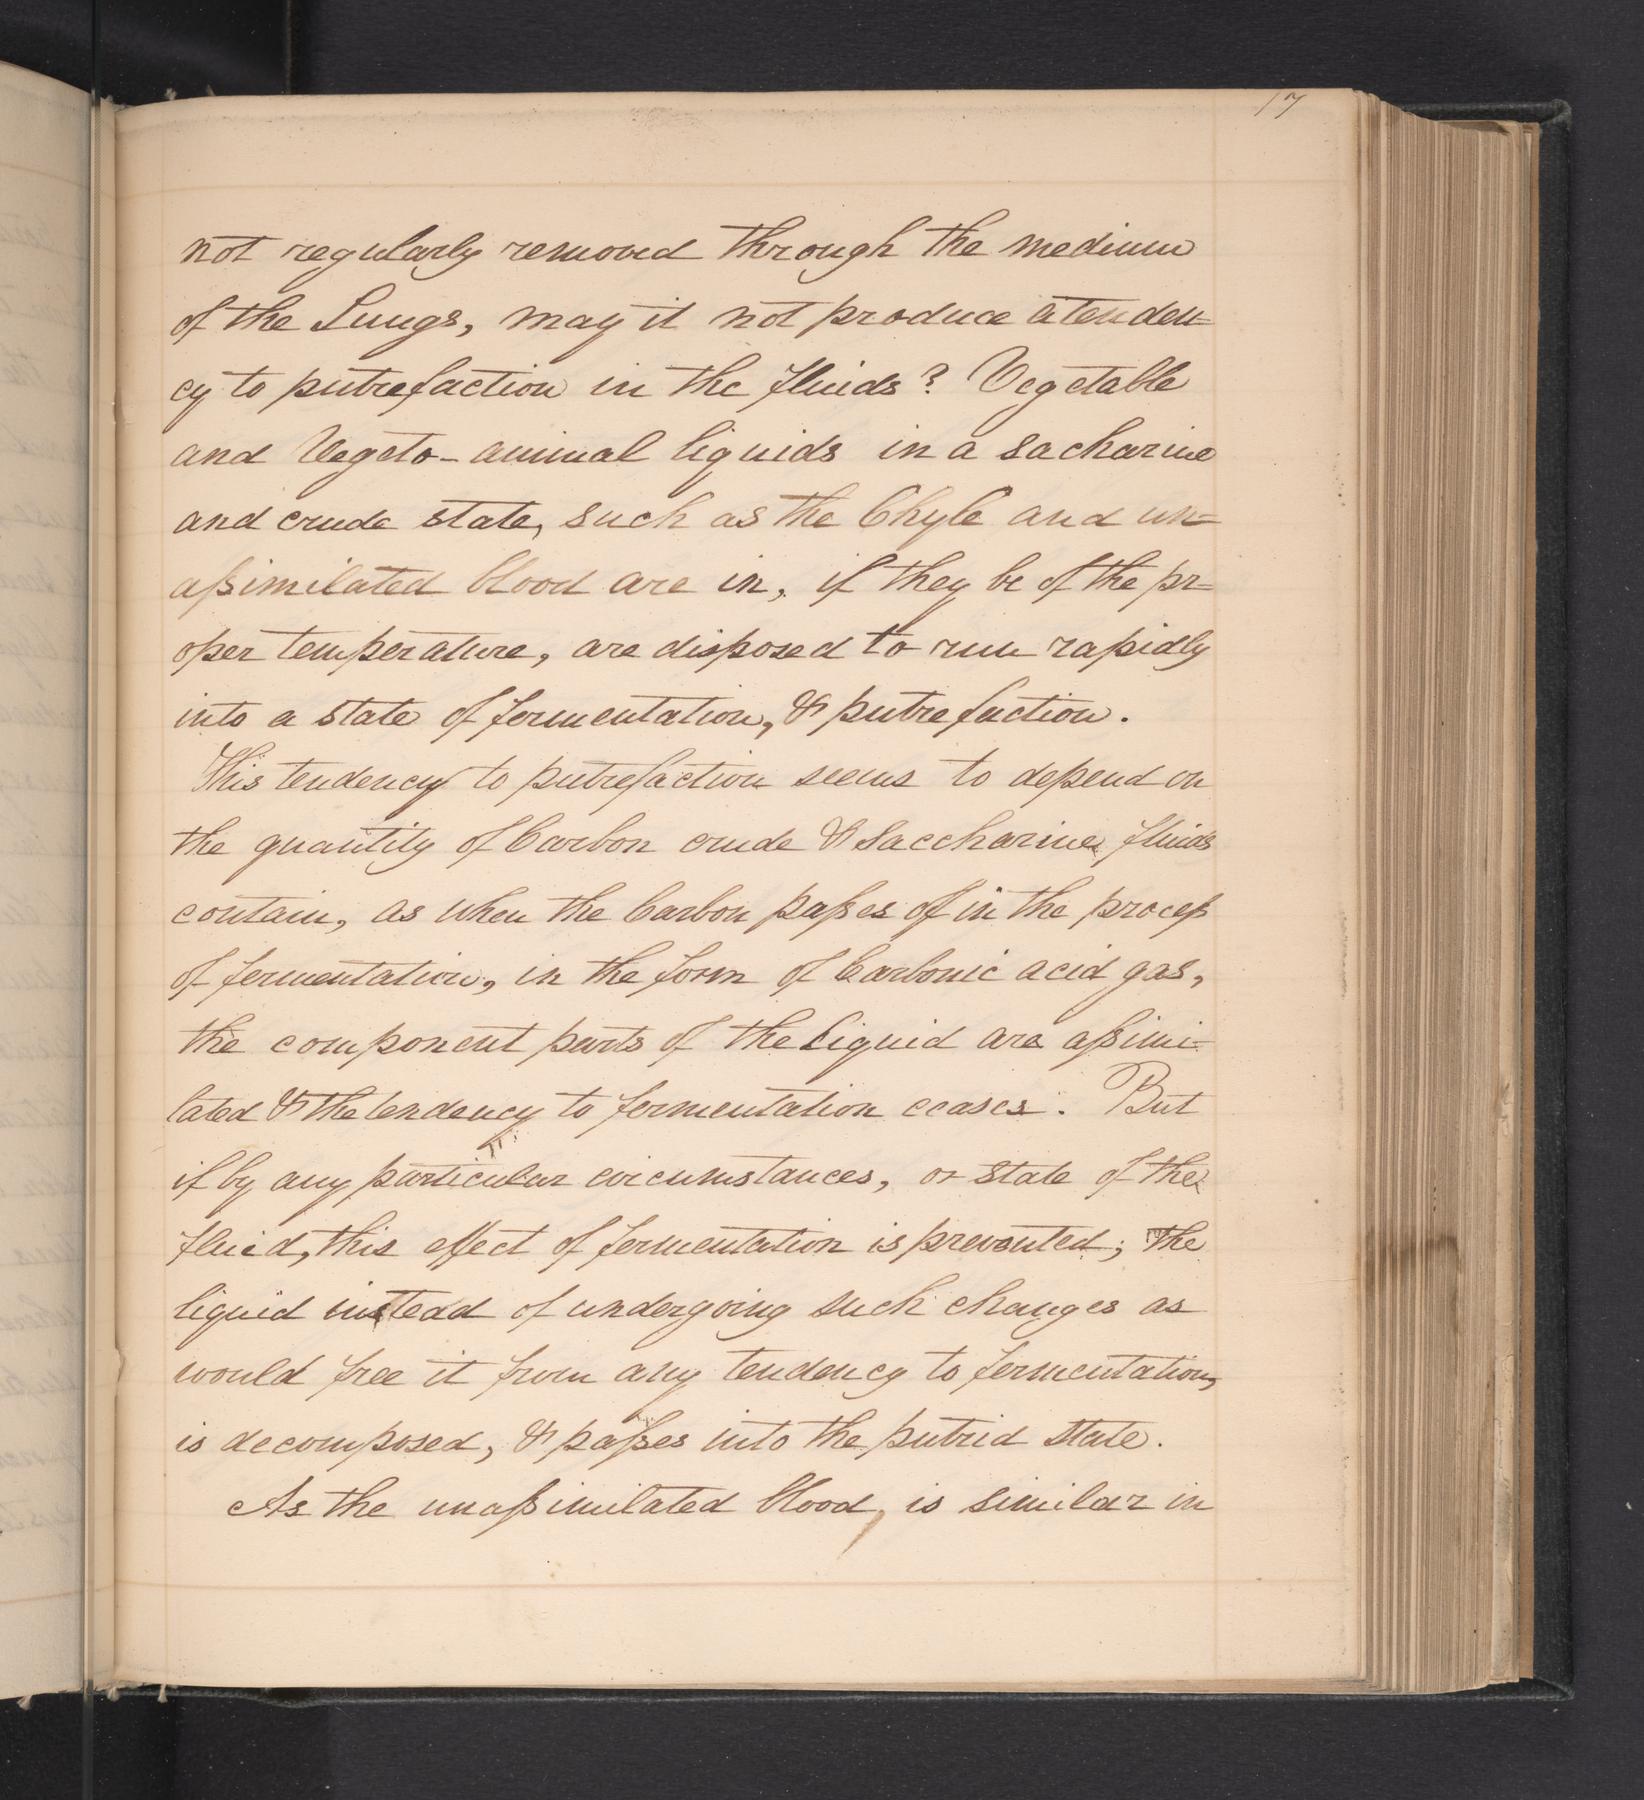 17
not regularly removed through the medium
of the Lungs, may it not produce a tenden=
cy to putrefaction in the fluids? Vegetable
and Vegeto-animal liquids in a sacharine
and crude state, such as the Chyle and un=
aſsimilated blood are in, if they be of the pr=
oper temperature, are disposed to run rapidly
into a state of fermentation, & putrefaction.
This tendency to putrefaction seems to depend on
the quantity of Carbon crude & Saccharine fluids
contain, as when the Carbon paſses of in the proceſs
of fermentation, in the form of Carbonic acid gas,
the component parts of the liquid are aſsimi=
lated & the tendency to fermentation ceases. But
if by any particular circumstances, or state of the
fluid, this effect of fermentation is prevented; the
liquid instead of undergoing such changes as
would free it from any tendency to fermentation,
is decomposed, & paſses into the putrid state.
As the unaſsimilated blood, is similar in